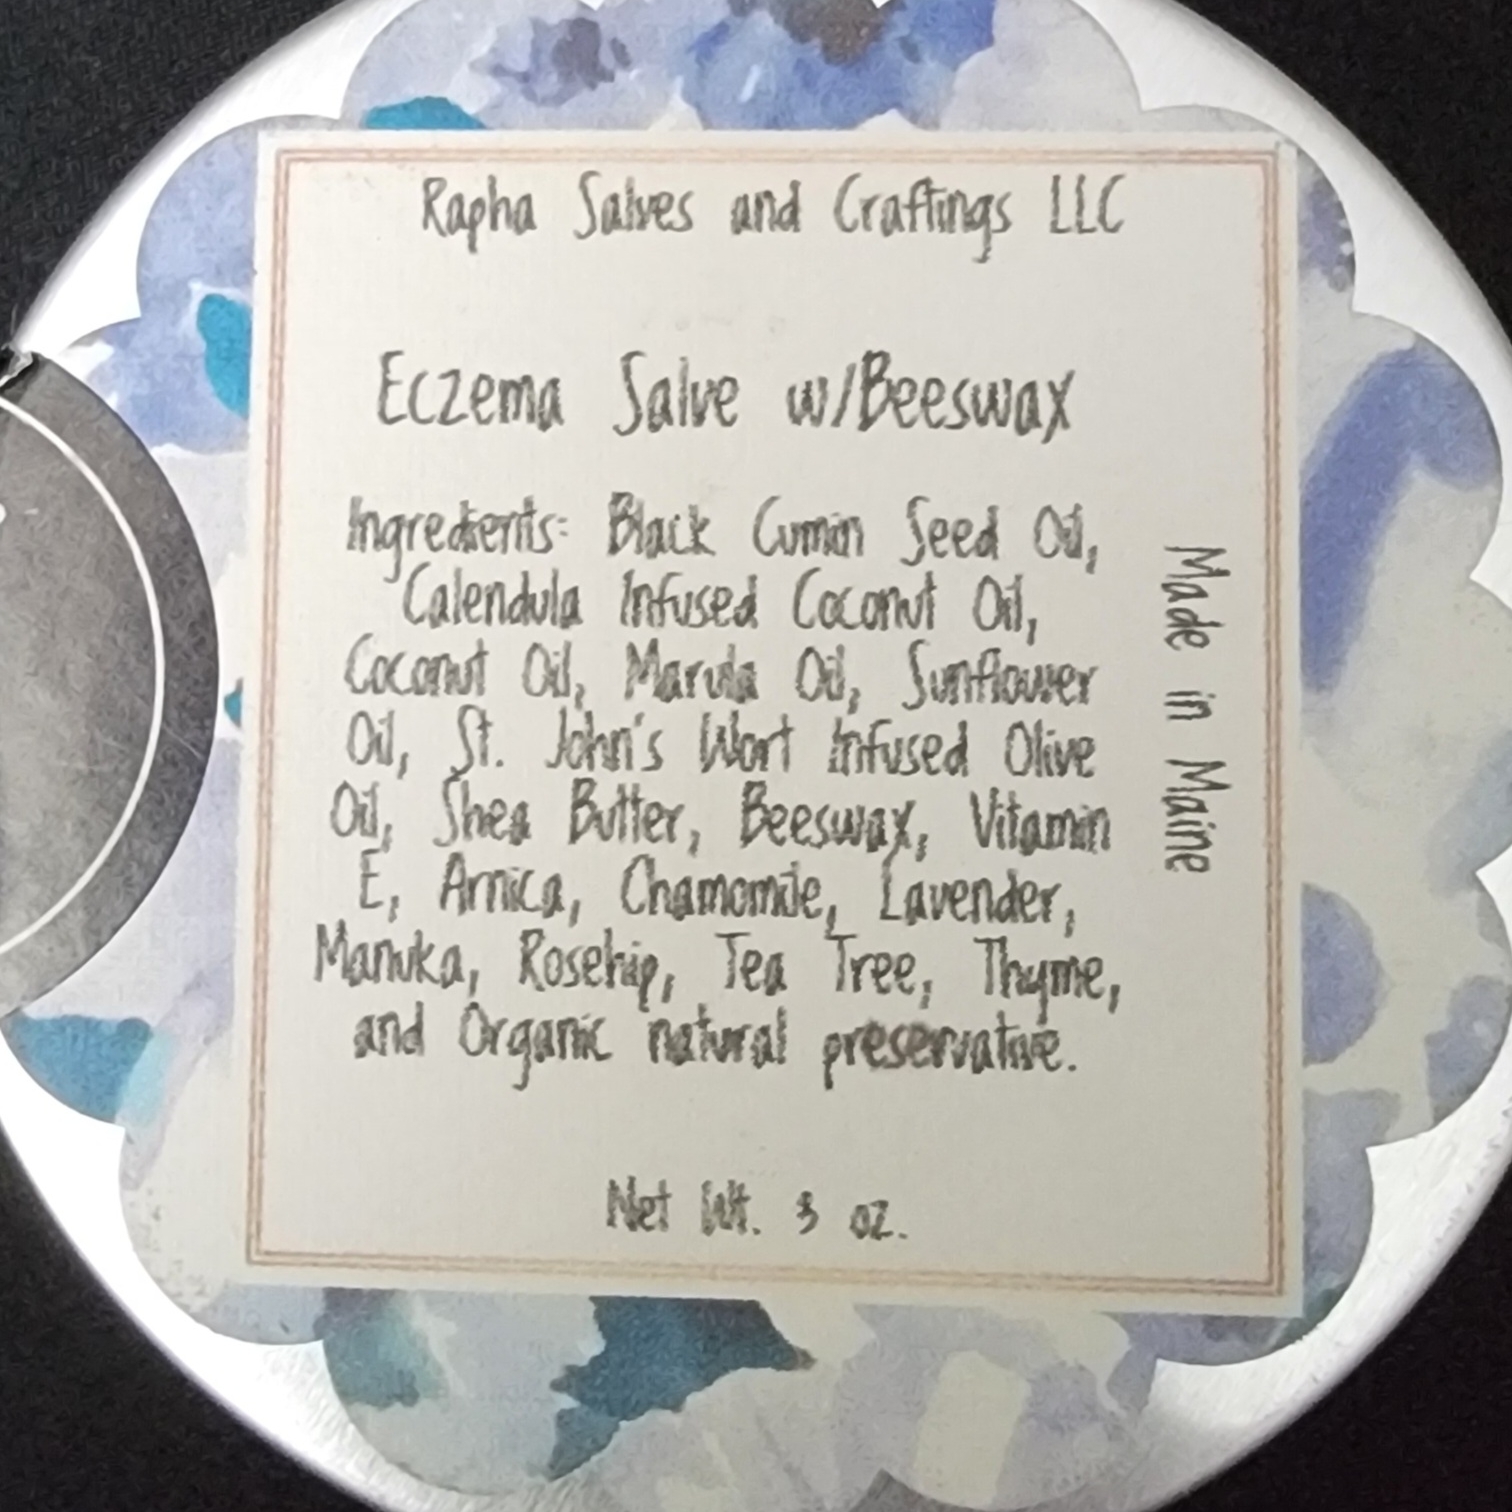 Rapha Salves and Craftings LLC
Eczema Salve w/Beeswax
Ingredients: Black Cumin Seed Oil,
Calendula Infused Coconut Oil,
Coconut Oil, Marula Oil, Sunflower
Oil, St. John's Wort Infused Olive
Oil, Shea Butter, Beeswax, Vitamin
E, Arnica, Chamomile, Lavender,
Manuka, Rosehip, Tea Tree, Thyme,
and Organic natural preservative.
Net Wt. 3 oz.
Made in Maine